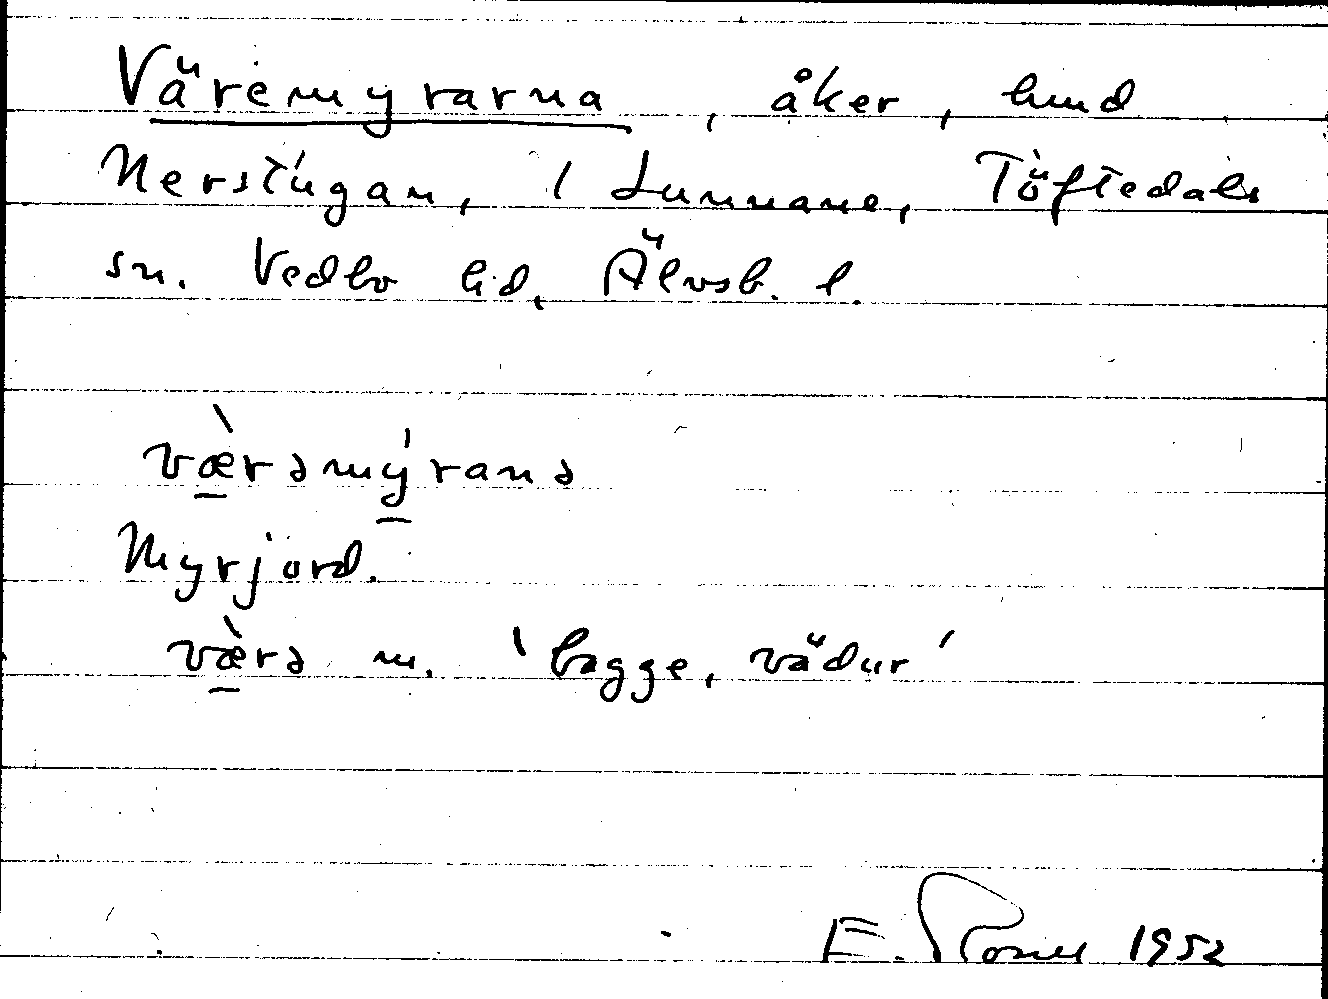 Väremyrarna, åker, hmd
Nerstúgan, 1 Lunnane, Töftedals
sn. Vedbo hd, Älvsb. l.
væ̀rəmýranə
Myrjord.
væ̀rə m. 'bagge, vädur'
E. 1952